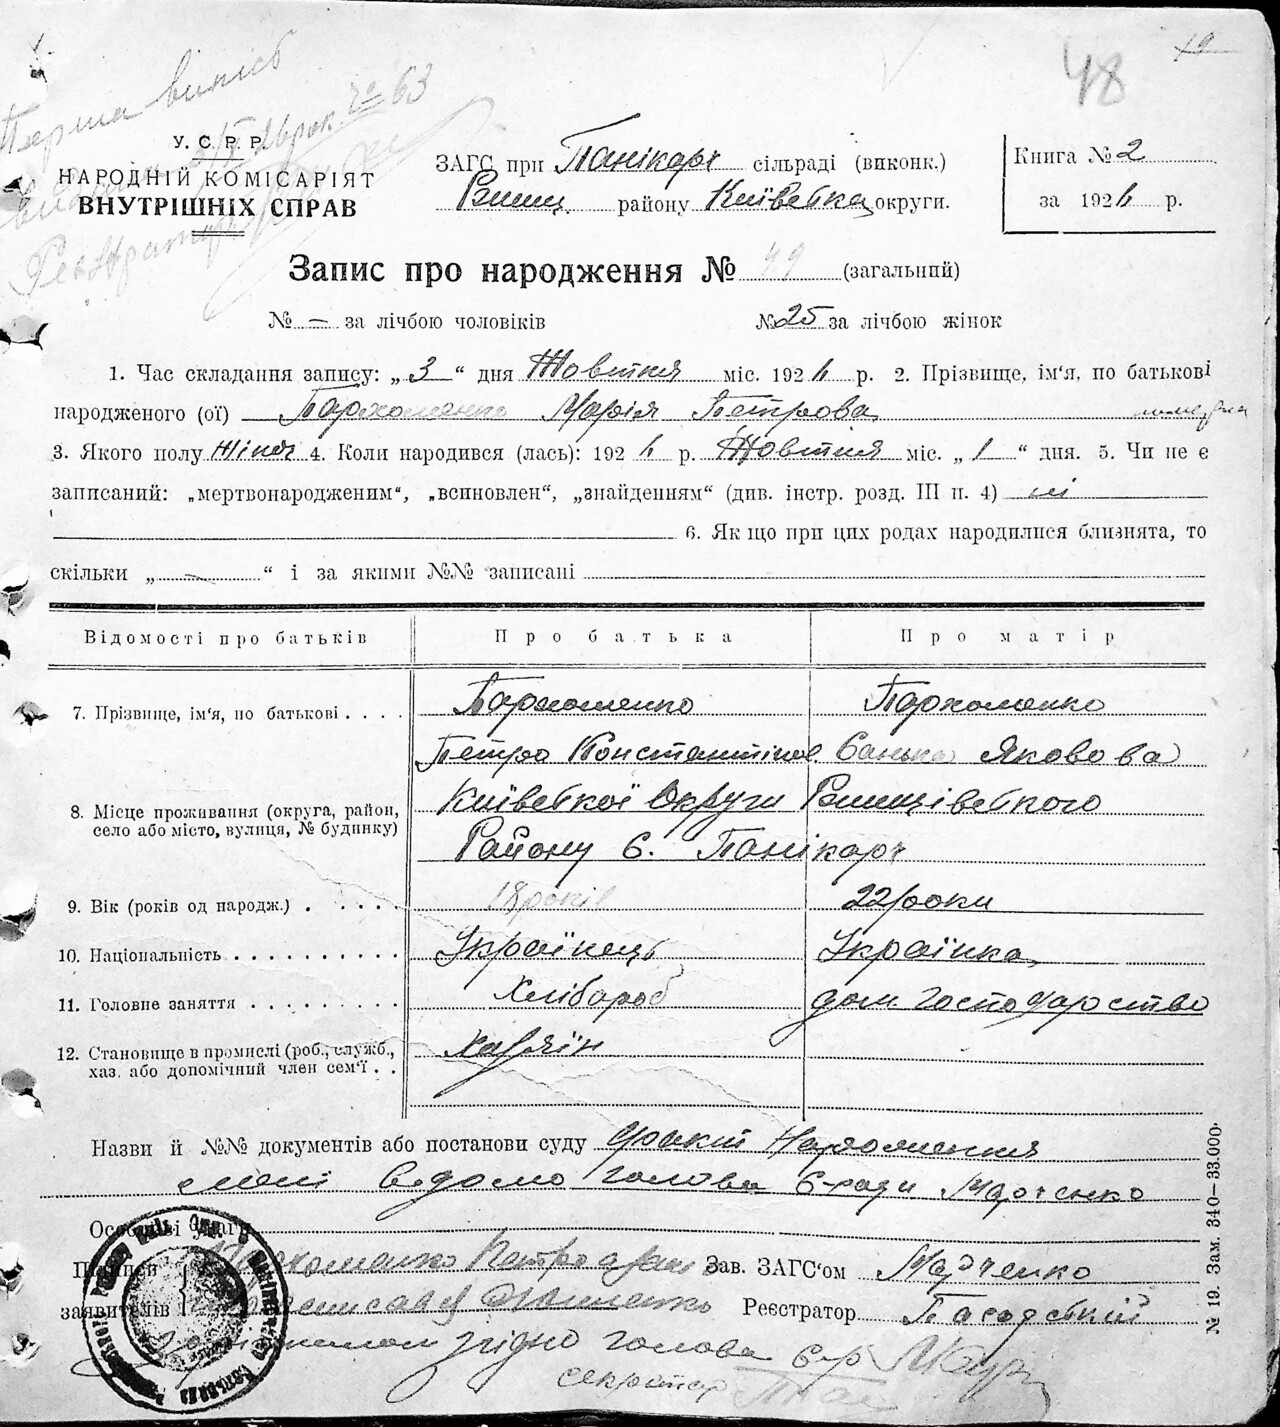 19
48
Перша випись
видана 3/X 26 рок. № 63
У. С. Р. Р.
НАРОДНІЙ КОМІСАРІЯТ
ВНУТРІШНІХ СПРАВ
ЗАГС при Панікарч сільраді (виконк.)
Ржищ. району Київська округи.
Книга № 2
за 1926 р.
Запис про народження № 49 (загальний)
№ — за лічбою чоловіків № 25 за лічбою жінок
1. Час складання запису: „ 3 “ дня Жовтня міс. 1926 р. 2. Прізвище, ім'я, по батькові
народженого (ої) Пархоменко Марія Петрова
3. Якого полу жіноч 4. Коли народився (лась): 1926 р. Жовтня міс. „ 1 “ дня. 5. Чи не є
записаний: „мертвонародженим“, „всиновлен“, „знайденям“ (див. інстр. розд. III п. 4) ні
6. Як що при цих родах народилися близнята, то
скільки „ — “ і за якими №№ записані
Відомості про батьків Про батька Про матір
7. Прізвище, ім'я, по батькові . . . . Пархоменко Пархоменко
Петро Константінов. Санька Яковова
8. Місце проживання (округа, район, Київської Округи Ржищівського
село або місто, вулиця, № будинку)
Району С. Панікарч
9. Вік (років од народж.) . . . . . 18 років 22 роки
10. Національність . . . . . . . . . . Українець Українка
11. Головне заняття . . . . . . . . . Хлібароб дом господарство
12. Становище в промислі (роб., служб., Хазяїн
хаз. або допомічний член сем'ї . .
Назви й №№ документів або постанови суду факт Народження
мені відомо голова С-ради Марченко
Особливі уваги
Підписи Пархоменко Петро Зав. ЗАГС'ом Марченко
заявителів Реєстратор
згідно голова С-р Мар
секретар
№ 19. Зам. 340—33.000.